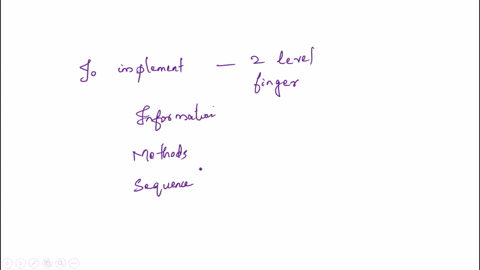 To implement — 2 level
finger
Information
Methods
Sequence